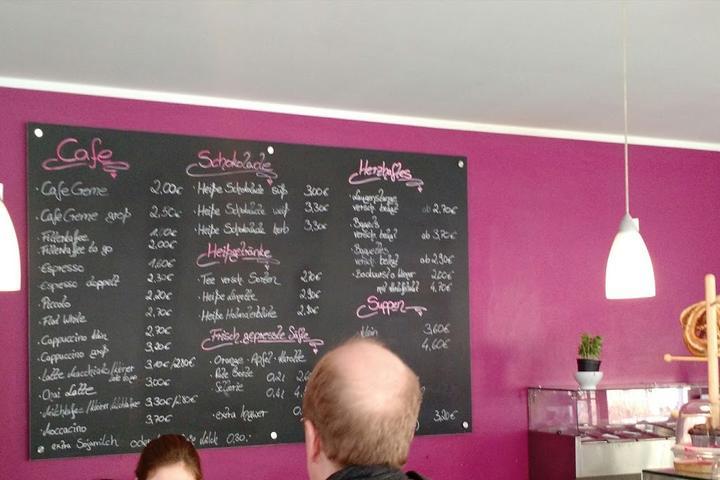 Cafe
Cafe Creme 2,00€
Cafe Creme groß 2,50€
Filterkaffee
Filterkaffee to go 2,00€
Espresso 1,60€
Espresso doppelt 2,30€
Piccolo 2,20€
Flat White 2,70€
Cappuccino klein 2,70€
Cappuccino groß 3,20€
Latte Macchiato / kleiner 3,10€/2,80€
Chai Latte 3,00€
Milchkaffee / kleiner Milchkaffee 3,30€/2,80€
Moccacino 3,70€
extra Sojamilch oder Milch 0,30.-
Schokolade
Heiße Schokolade süß 3,00€
Heiße Schokolade weiß 3,30€
Heiße Schokolade herb 3,30€
Heißgetränke
Tee versch. Sorten 2,70€
Heiße 2,90€
Heiße Holunderblüte 2,90€
Frisch gepresste Säfte
Orange - Apfel - Karotte
Rote Beete 0,2l
Sellerie 0,4l
extra Ingwer
Herzhaftes
Laugenstange
versch. belegt ab 2,70€
Bagels
versch. belegt ab 3,70€
Baguettes
versch. belegt ab 2,90€
Bockwurst o. Wiener 2,00€
mit 4,70€
Suppen
klein 3,60€
4,60€
3,20€